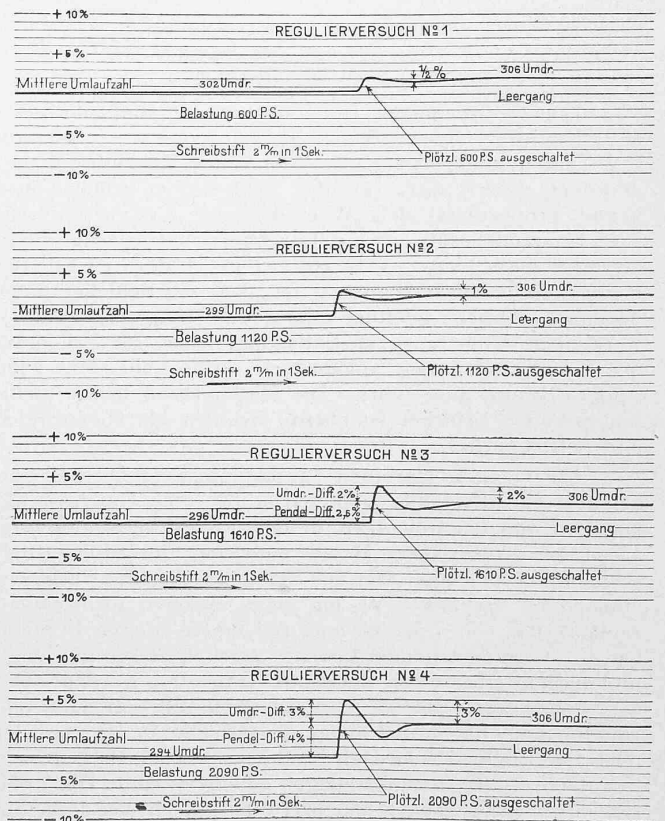 + 10%
REGULIERVERSUCH Nº 1
+ 5%
Mittlere Umlaufzahl 302 Umdr. ½ % 306 Umdr.
Belastung 600 P.S. Leergang
- 5%
Schreibstift 2 m/m in 1 Sek. Plötzl. 600 P.S. ausgeschaltet
- 10%
+ 10%
REGULIERVERSUCH Nº 2
+ 5%
1% 306 Umdr.
Mittlere Umlaufzahl 299 Umdr. Leergang
Belastung 1120 P.S.
- 5%
Schreibstift 2 m/m in 1 Sek. Plötzl. 1120 P.S. ausgeschaltet
- 10%
+ 10%
REGULIERVERSUCH Nº 3
+ 5%
Umdr.-Diff. 2% 2% 306 Umdr.
Mittlere Umlaufzahl 296 Umdr. Pendel-Diff. 2,5%
Belastung 1610 P.S. Leergang
- 5%
Schreibstift 2 m/m in 1 Sek. Plötzl. 1610 P.S. ausgeschaltet
- 10%
+ 10%
REGULIERVERSUCH Nº 4
+ 5%
Umdr.-Diff. 3% 3% 306 Umdr.
Mittlere Umlaufzahl Pendel-Diff. 4%
294 Umdr. Leergang
Belastung 2090 P.S.
- 5%
Schreibstift 2 m/m in Sek. Plötzl. 2090 P.S. ausgeschaltet
- 10%